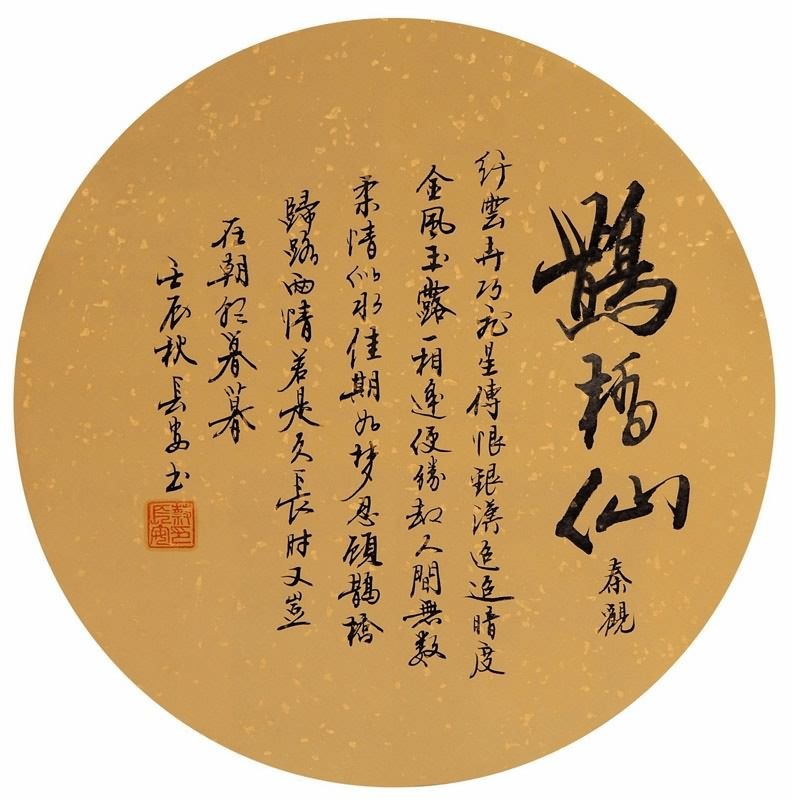 鵲橋仙
秦觀
纤雲弄巧飛星傳恨銀漢迢迢暗度
金風玉露一相逢便勝却人間無数
柔情似水佳期如梦忍顧鵲橋
歸路两情若是久長時又豈
在朝朝暮暮
壬辰秋長安书
蔡氏長安